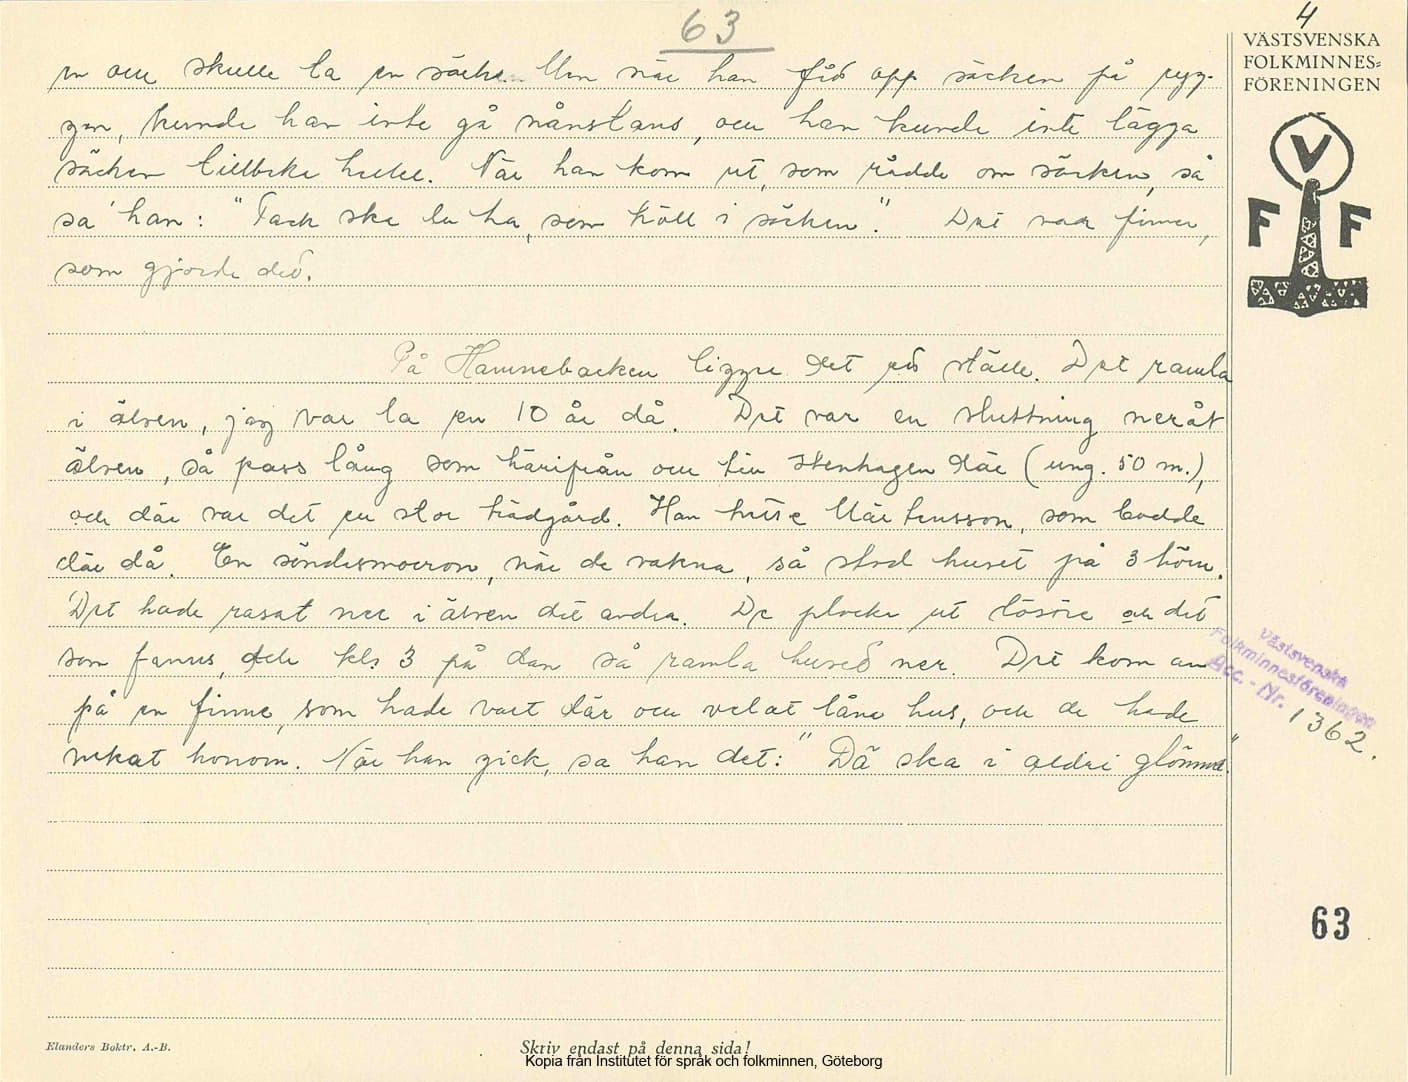 63
4
VÄSTSVENSKA
FOLKMINNES=
FÖRENINGEN
en och skulle ta en säck. Men när han fåd opp säcken på ryg-
gen, kunde han inte gå nånstans, och han kunde inte lägga
säcken tillbaka heller. När han kom ut, som rådde om säcken, så
sa' han: "Tack ska du ha, som höll i säcken." Det var finnar,
som gjorde ded.
På Hamnebacken ligger det ed ställe. Det ramla
i älven, jag var la en 10 år då. Det var en sluttning neråt
älven, så pass lång som härifrån och till stenhagen där (ung. 50 m.),
och där var det en stor trädgård. Han hette Mårtensson, som bodde
där då. En söndasmorron, när de vakna, så stod huset på 3 hörn.
Det hade rasat ner i älven det andra. De plocka ut lösöre och det
som fanns, och kl. 3 på dan så ramla huset ner. Det kom an
på en finne, som hade vart där och velat låna hus, och de hade
nekat honom. När han gick, sa han det: "Dä ska i aldri glömma."
V
F F
Västsvenska
Folkminnesföreningen
Acc. - Nr. 1362.
63
Elanders Boktr. A.-B.
Skriv endast på denna sida!
Kopia från Institutet för språk och folkminnen, Göteborg